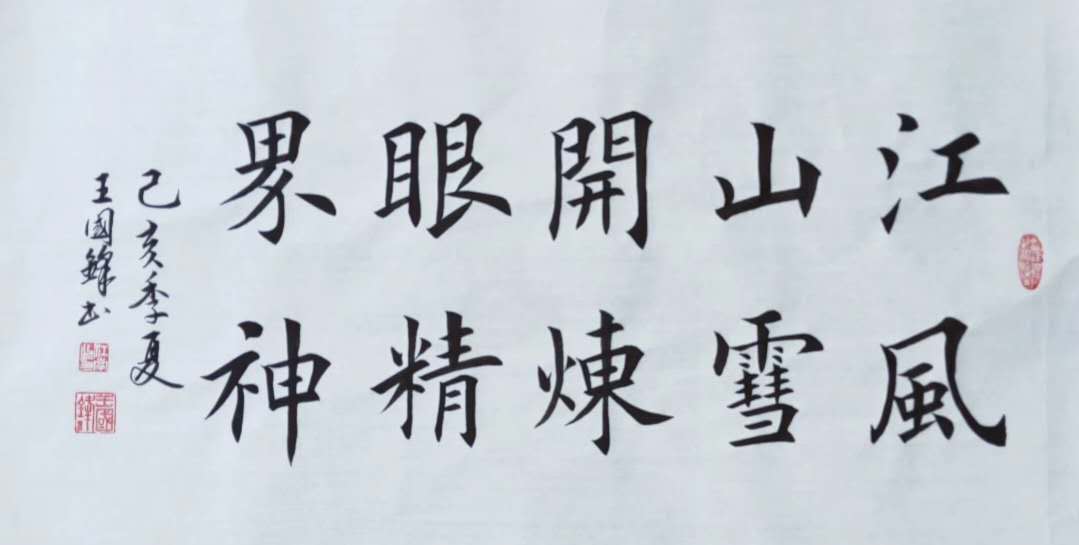 江山開眼界
風雪煉精神
己亥季夏
王國鋒书